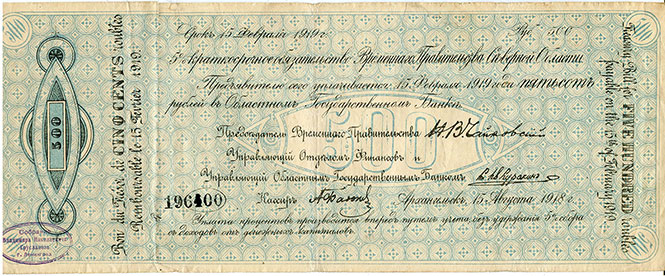 Срокъ 15 Февраля 1919 г.
Руб. 500
5% краткосрочное обязательство Временнаго Правительства Сѣверной Области
Предъявителю сего уплачивается 15 Февраля 1919 года пятьсотъ
рублей въ Областномъ Государственномъ Банкѣ.
Предсѣдатель Временнаго Правительства Н. В. Чайковскій
Управляющій Отдѣломъ Финансовъ и
Управляющій Областнымъ Государственнымъ Банкомъ
Кассиръ
Архангельскъ, 15 Августа 1918 г.
Уплата процентовъ производится впередъ путемъ учета, съ удержаніемъ 5% сбора
съ доходовъ отъ денежныхъ капиталовъ.
196400
500
500
Bon du Trésor de CINQ CENTS roubles
Remboursable le 15 Février 1919.
Treasury Bill for FIVE HUNDRED roubles
payable on the 15th of February 1919